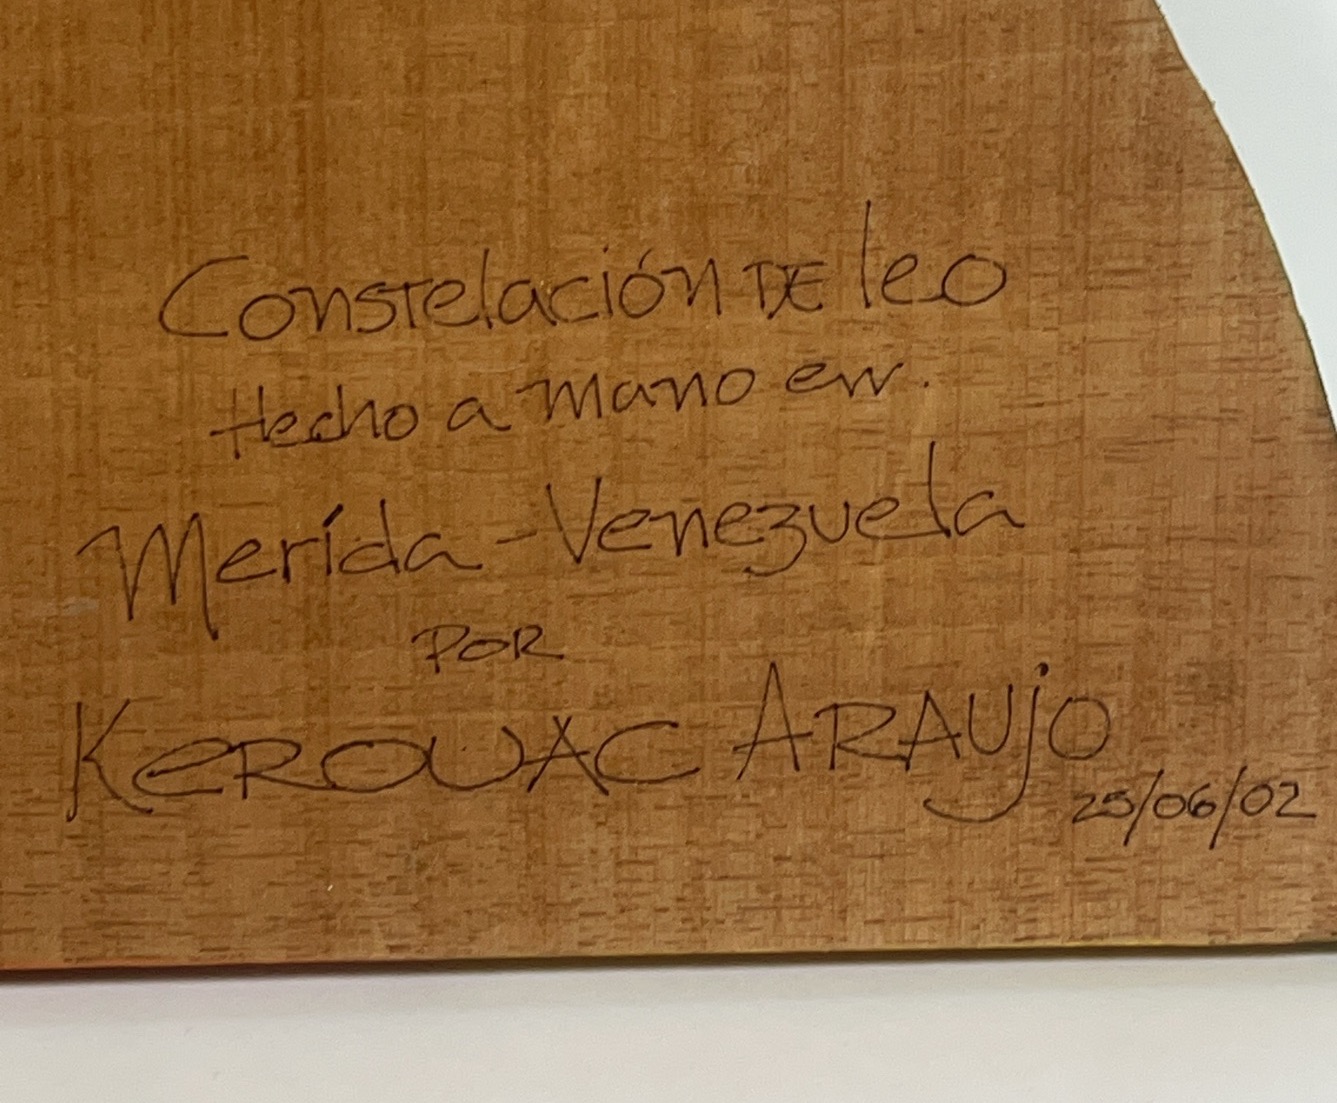 Constelación DE leo
Hecho a mano en.
Merída - Venezuela
POR
KEROUAC ARAUjO
25/06/02